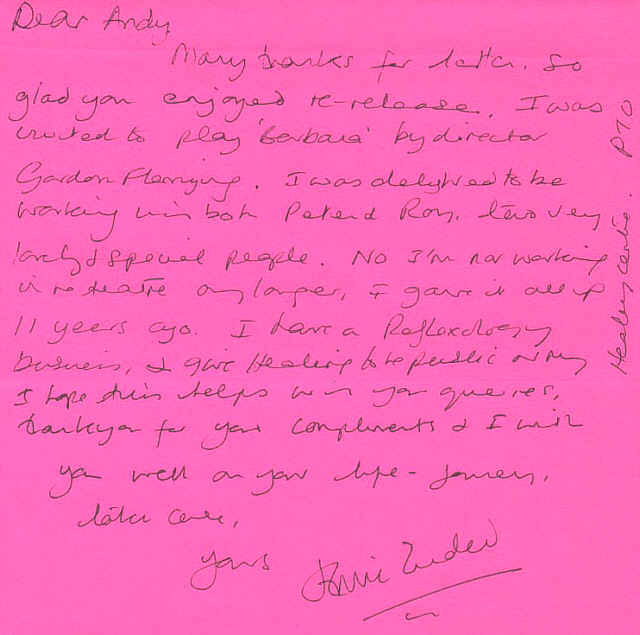 Dear Andy,
Many thanks for letter. So
glad you enjoyed re-release. I was
invited to play 'Barbara' by director
Gordon Flemyng. I was delighted to be
working with both Peter & Roy, two very
lovely & special people. No I'm not working
in the theatre any longer, I gave it all up
11 years ago. I have a Reflexology
business, & give Healing to the public at my
Healing Centre. PTO
I hope this helps with your queries,
thankyou for your compliments & I wish
you well on your life-journey,
take care,
yours
Jennie Linden